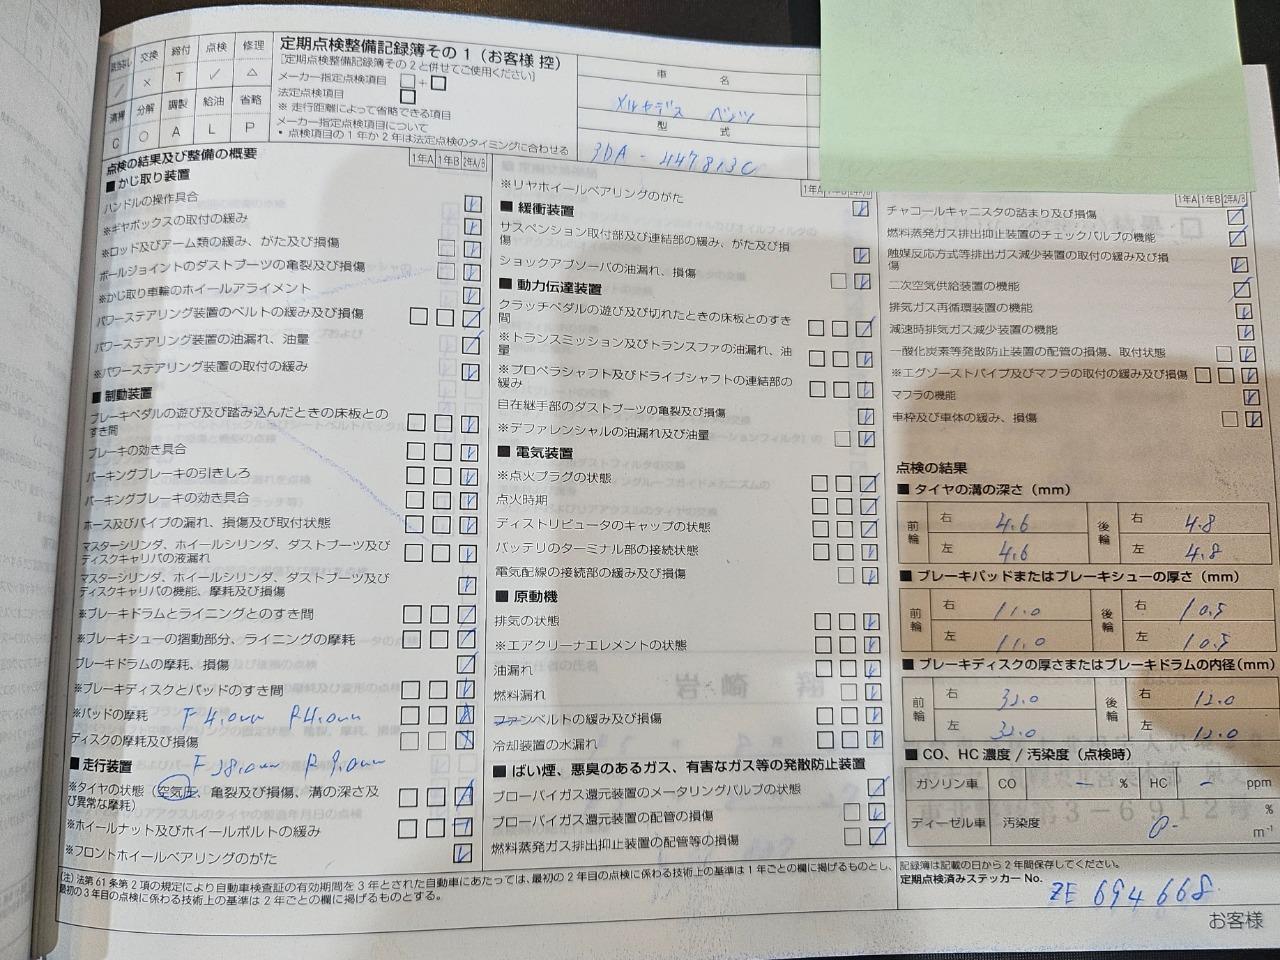 定期点検整備記録簿その1（お客様 控）
[定期点検整備記録簿その2と併せてご使用ください]
交換 締付 点検 修理
× T ✓ △
清掃 分解 調整 給油 省略
C ○ A L P
メーカー指定点検項目 □+□
法定点検項目 □
※ 走行距離によって省略できる項目
メーカー指定点検項目について
• 点検項目の1年か2年は法定点検のタイミングに合わせる
車 名
メルセデス ベンツ
型 式
3DA-447813C
点検の結果及び整備の概要
1年A 1年B 2年A/B
■ かじ取り装置
ハンドルの操作具合
※ギヤボックスの取付の緩み
※ロッド及びアーム類の緩み、がた及び損傷
ボールジョイントのダストブーツの亀裂及び損傷
※かじ取り車輪のホイールアライメント
パワーステアリング装置のベルトの緩み及び損傷
パワーステアリング装置の油漏れ、油量
※パワーステアリング装置の取付の緩み
■ 制動装置
ブレーキペダルの遊び及び踏み込んだときの床板との
すき間
ブレーキの効き具合
パーキングブレーキの引きしろ
パーキングブレーキの効き具合
ホース及びパイプの漏れ、損傷及び取付状態
マスターシリンダ、ホイールシリンダ、ダストブーツ及び
ディスクキャリパの液漏れ
マスターシリンダ、ホイールシリンダ、ダストブーツ及び
ディスクキャリパの機能、摩耗及び損傷
※ブレーキドラムとライニングとのすき間
※ブレーキシューの摺動部分、ライニングの摩耗
ブレーキドラムの摩耗、損傷
※ブレーキディスクとパッドのすき間
※パッドの摩耗 F 4.0mm R4.0mm
ディスクの摩耗及び損傷
F 28.0mm R 9.0mm
■ 走行装置
※タイヤの状態（空気圧、亀裂及び損傷、溝の深さ及
び異常な摩耗）
※ホイールナット及びホイールボルトの緩み
※フロントホイールベアリングのがた
1年A 1年B 2年A/B
※リヤホイールベアリングのがた
■ 緩衝装置
サスペンション取付部及び連結部の緩み、がた及び損
傷
ショックアブソーバの油漏れ、損傷
■ 動力伝達装置
クラッチペダルの遊び及び切れたときの床板とのすき
間
※トランスミッション及びトランスファの油漏れ、油
量
※プロペラシャフト及びドライブシャフトの連結部の
緩み
自在継手部のダストブーツの亀裂及び損傷
※デファレンシャルの油漏れ及び油量
■ 電気装置
※点火プラグの状態
点火時期
ディストリビュータのキャップの状態
バッテリのターミナル部の接続状態
電気配線の接続部の緩み及び損傷
■ 原動機
排気の状態
※エアクリーナエレメントの状態
油漏れ
燃料漏れ
ファンベルトの緩み及び損傷
冷却装置の水漏れ
■ ばい煙、悪臭のあるガス、有害なガス等の発散防止装置
ブローバイガス還元装置のメータリングバルブの状態
ブローバイガス還元装置の配管の損傷
燃料蒸発ガス排出抑止装置の配管等の損傷
1年A 1年B 2年A/B
チャコールキャニスタの詰まり及び損傷
燃料蒸発ガス排出抑止装置のチェックバルブの機能
触媒反応方式等排出ガス減少装置の取付の緩み及び損
傷
二次空気供給装置の機能
排気ガス再循環装置の機能
減速時排気ガス減少装置の機能
一酸化炭素等発散防止装置の配管の損傷、取付状態
※エグゾーストパイプ及びマフラの取付の緩み及び損傷
マフラの機能
車枠及び車体の緩み、損傷
点検の結果
■ タイヤの溝の深さ（mm）
前輪 右 4.6 後輪 右 4.8
左 4.6 左 4.8
■ ブレーキパッドまたはブレーキシューの厚さ（mm）
前輪 右 11.0 後輪 右 10.5
左 11.0 左 10.5
■ ブレーキディスクの厚さまたはブレーキドラムの内径（mm）
前輪 右 32.0 後輪 右 12.0
左 32.0 左 12.0
■ CO、HC 濃度 / 汚染度（点検時）
ガソリン車 CO - % HC - ppm
ディーゼル車 汚染度 0- % m⁻¹
(注) 法第61条第2項の規定により自動車検査証の有効期間を3年とされた自動車にあたっては、最初の2年目の点検に係わる技術上の基準は1年ごとの欄に掲げるものとし、
最初の3年目の点検に係わる技術上の基準は2年ごとの欄に掲げるものとする。
記録簿は記載の日から2年間保存してください。
定期点検済みステッカー No.
ZE 694668
お客様